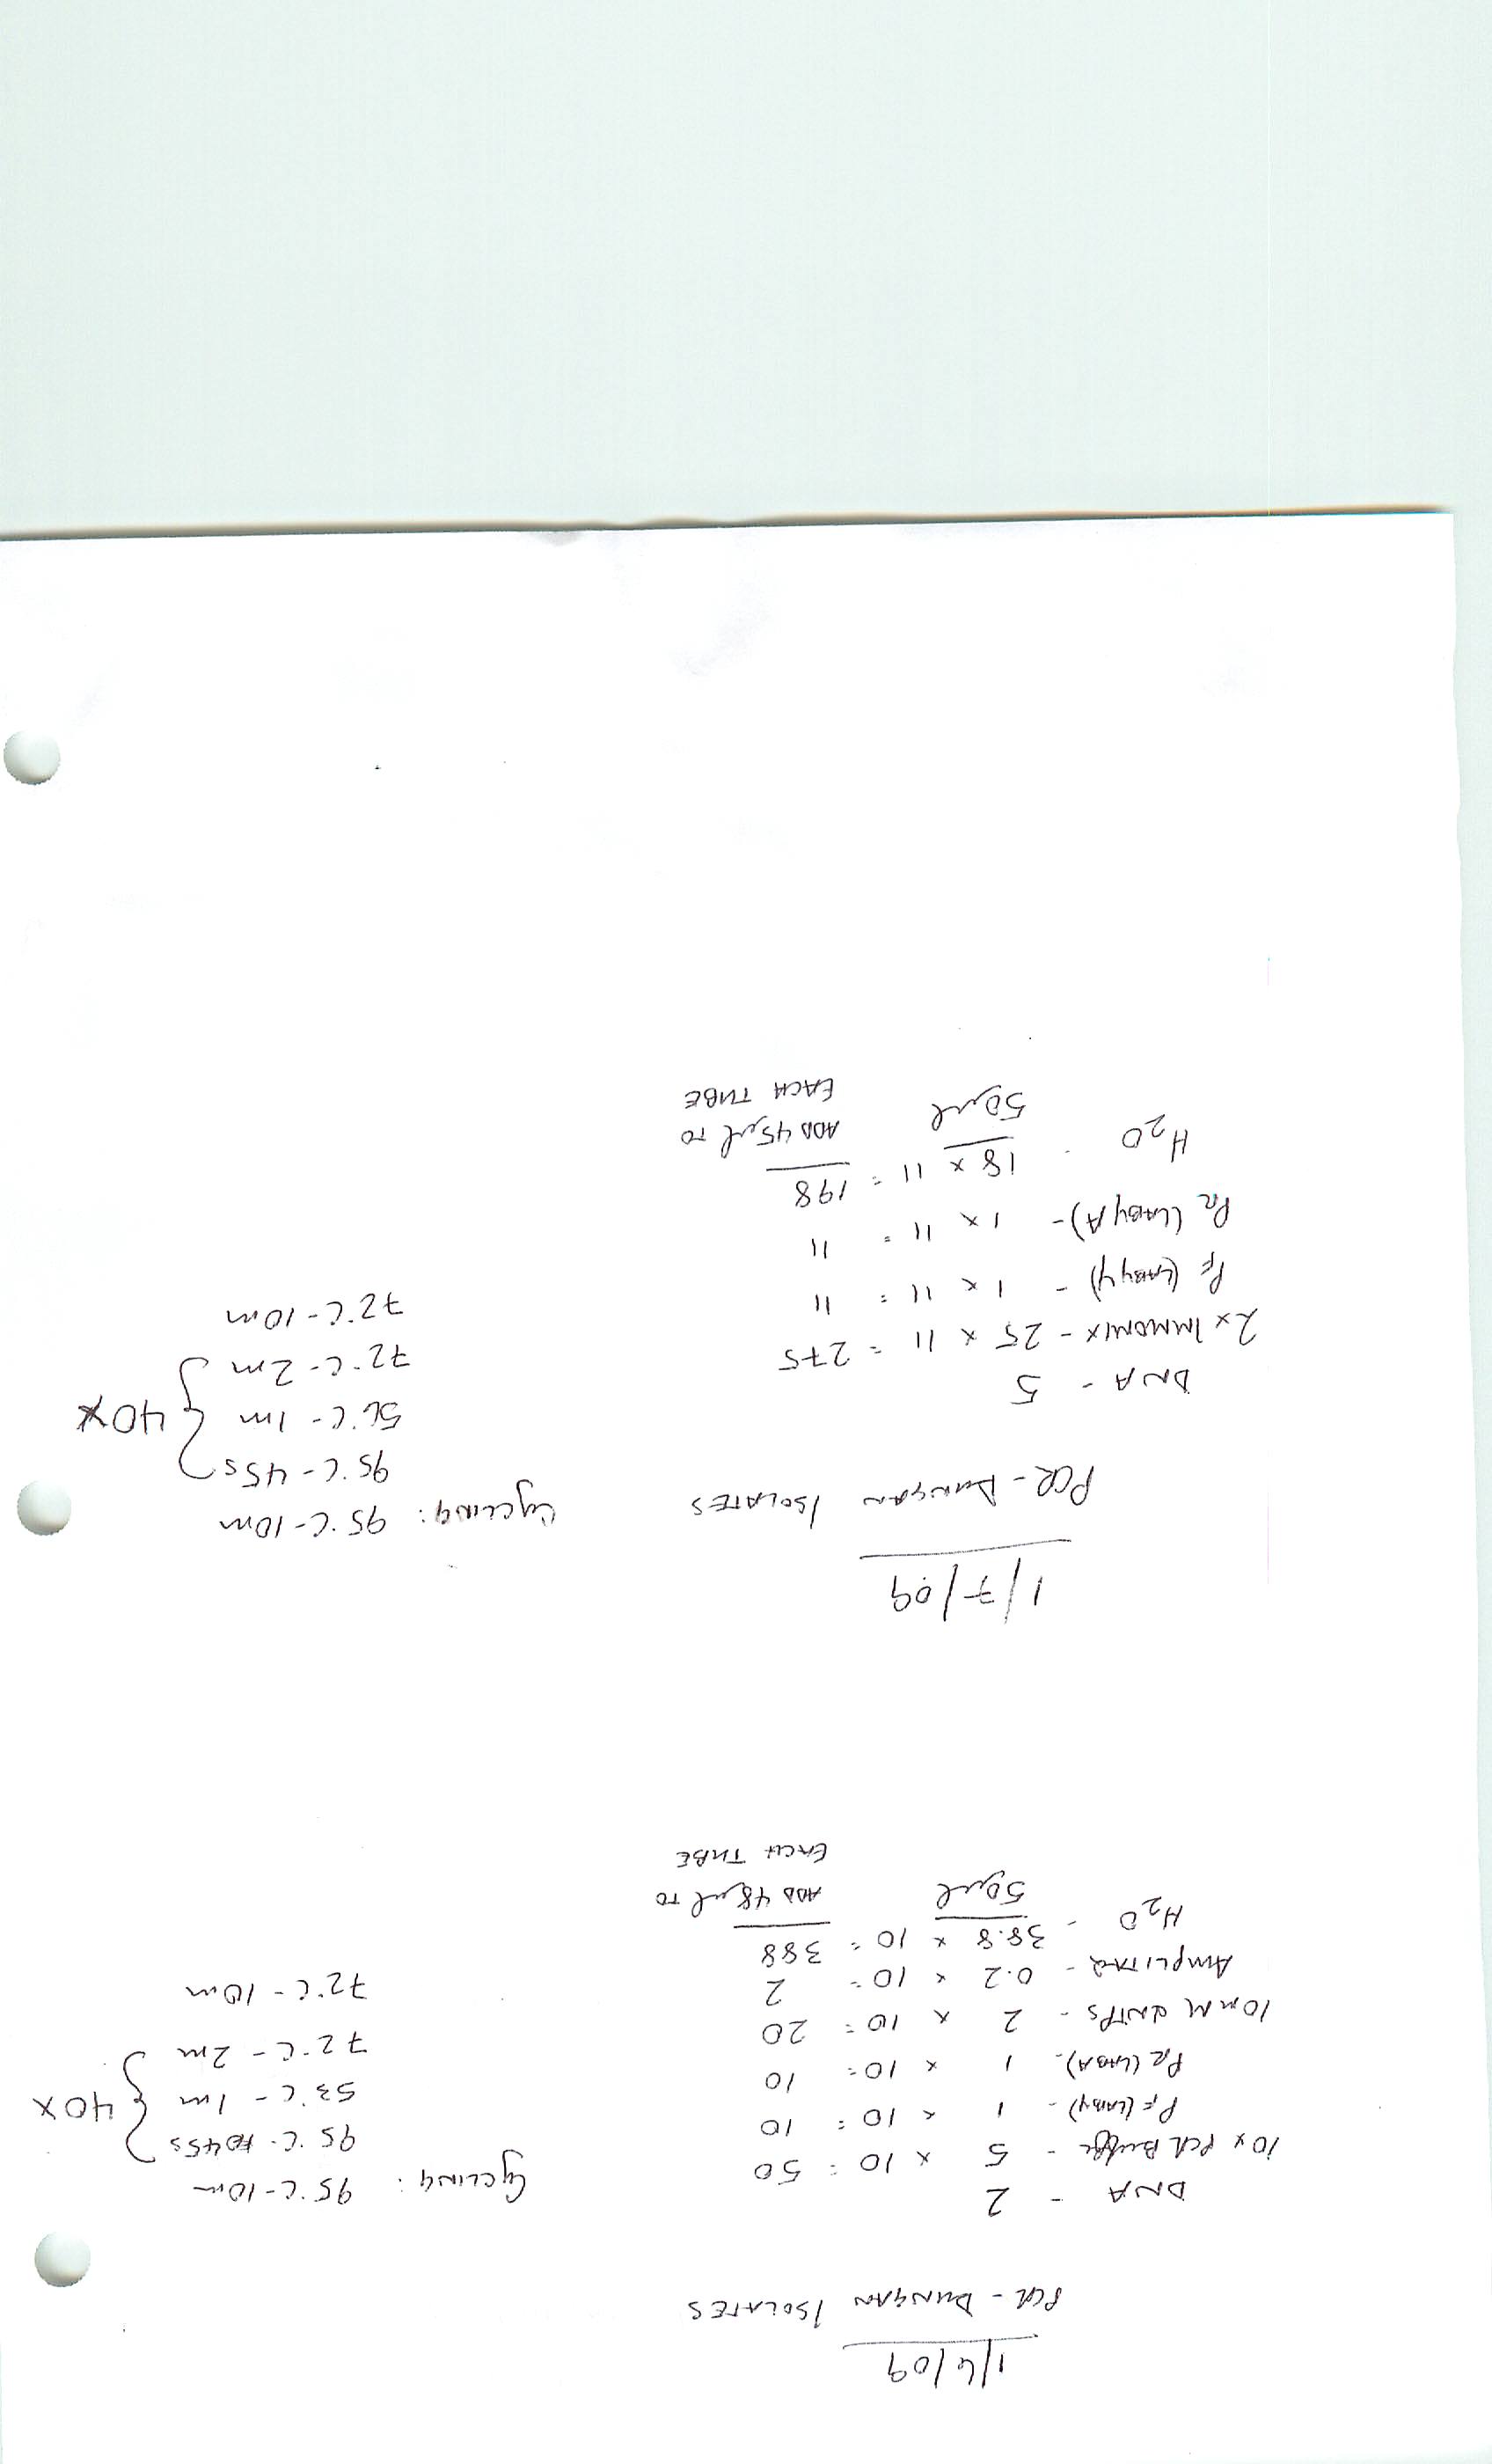 1/6/09
PCR - DUNGAN ISOLATES
DNA - 2
10x PCR Buffer - 5 x 10 = 50
PF (LABY) - 1 x 10 = 10
PR (LABYA) - 1 x 10 = 10
10mM dNTPs - 2 x 10 = 20
AMPLITAQ - 0.2 x 10 = 2
H2O - 38.8 x 10 = 388
50µl ADD 48µl TO
EACH TUBE
CYCLING: 95°C - 10m
95°C - 45s
53°C - 1m } 40x
72°C - 2m
72°C - 10m
1/7/09
PCR - DUNGAN ISOLATES
DNA - 5
2x IMMOMIX - 25 x 11 = 275
PF (LABY4) - 1 x 11 = 11
PR (LABYA) - 1 x 11 = 11
H2O - 18 x 11 = 198
50µl ADD 45µl TO
EACH TUBE
CYCLING: 95°C - 10m
95°C - 45s
56°C - 1m } 40x
72°C - 2m
72°C - 10m